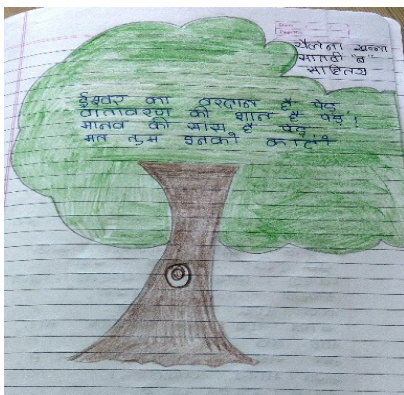 खन्ना
सातवी "ब"
साहित्य
ईश्वर का वरदान है पेड़
वातावरण की शान है पेड़ !
मानव की सांस है पेड़
मत तुम इनको काटो